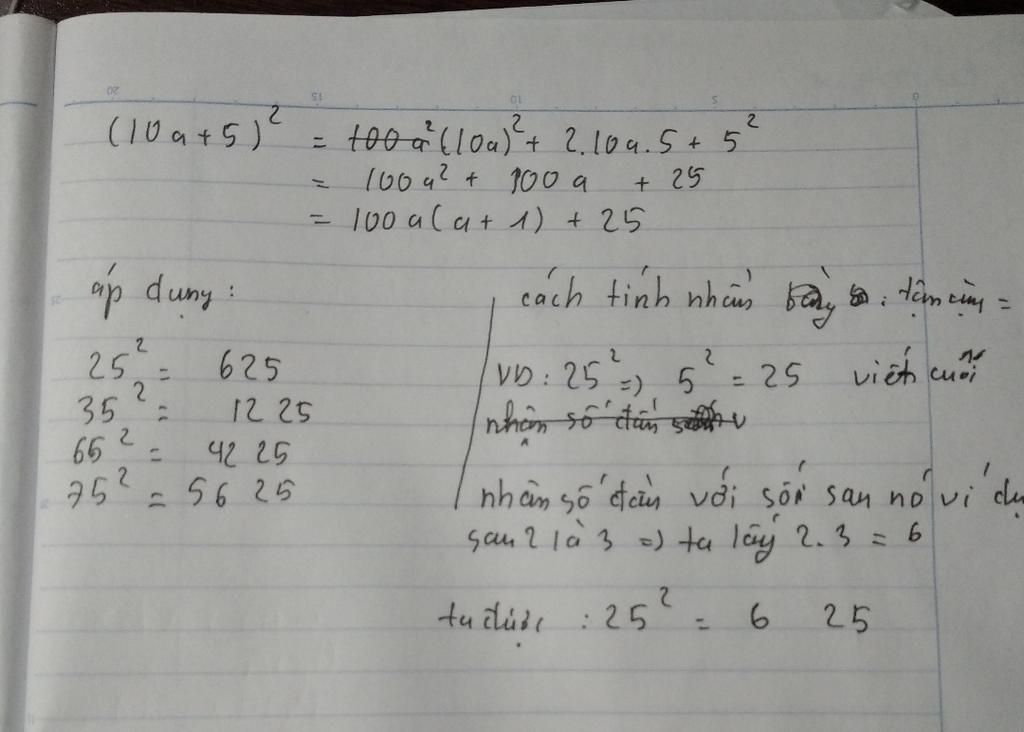 (10a+5)² = (10a)² + 2.10a.5 + 5²
= 100a² + 100a + 25
= 100a(a+1) + 25
áp dụng :
25² = 625
35² = 1225
65² = 4225
75² = 5625
cách tính nhẩm : tận cùng =
VD : 25² => 5² = 25 viết cuối
nhân số đầu với số sau nó ví dụ
sau 2 là 3 => ta lấy 2.3 = 6
ta được : 25² = 6 25